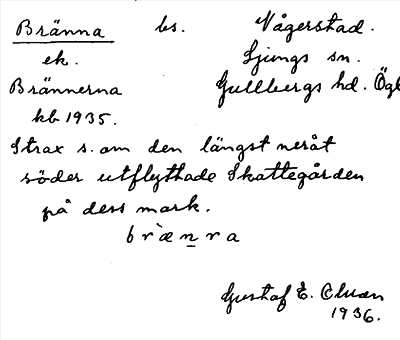 Bränna bs. Vågerstad.
ek. Ljungs sn.
Brännerna Gullbergs hd. Ögl
kb 1935.
Strax s. om den längst neråt
söder utflyttade Skattegården
på dess mark.
br̀æn̲ra
Gustaf E.
1936.